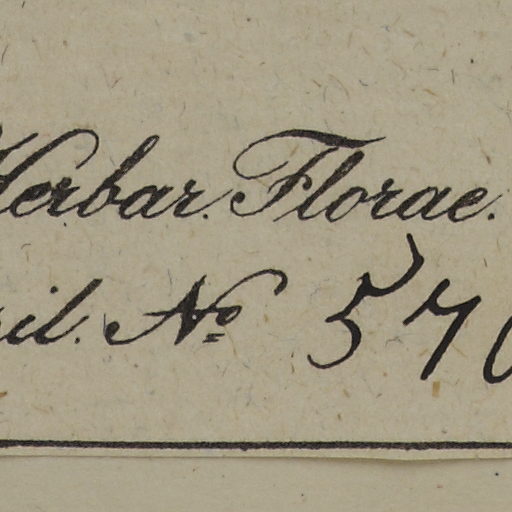 Herbar. Florae.
sil. No 57